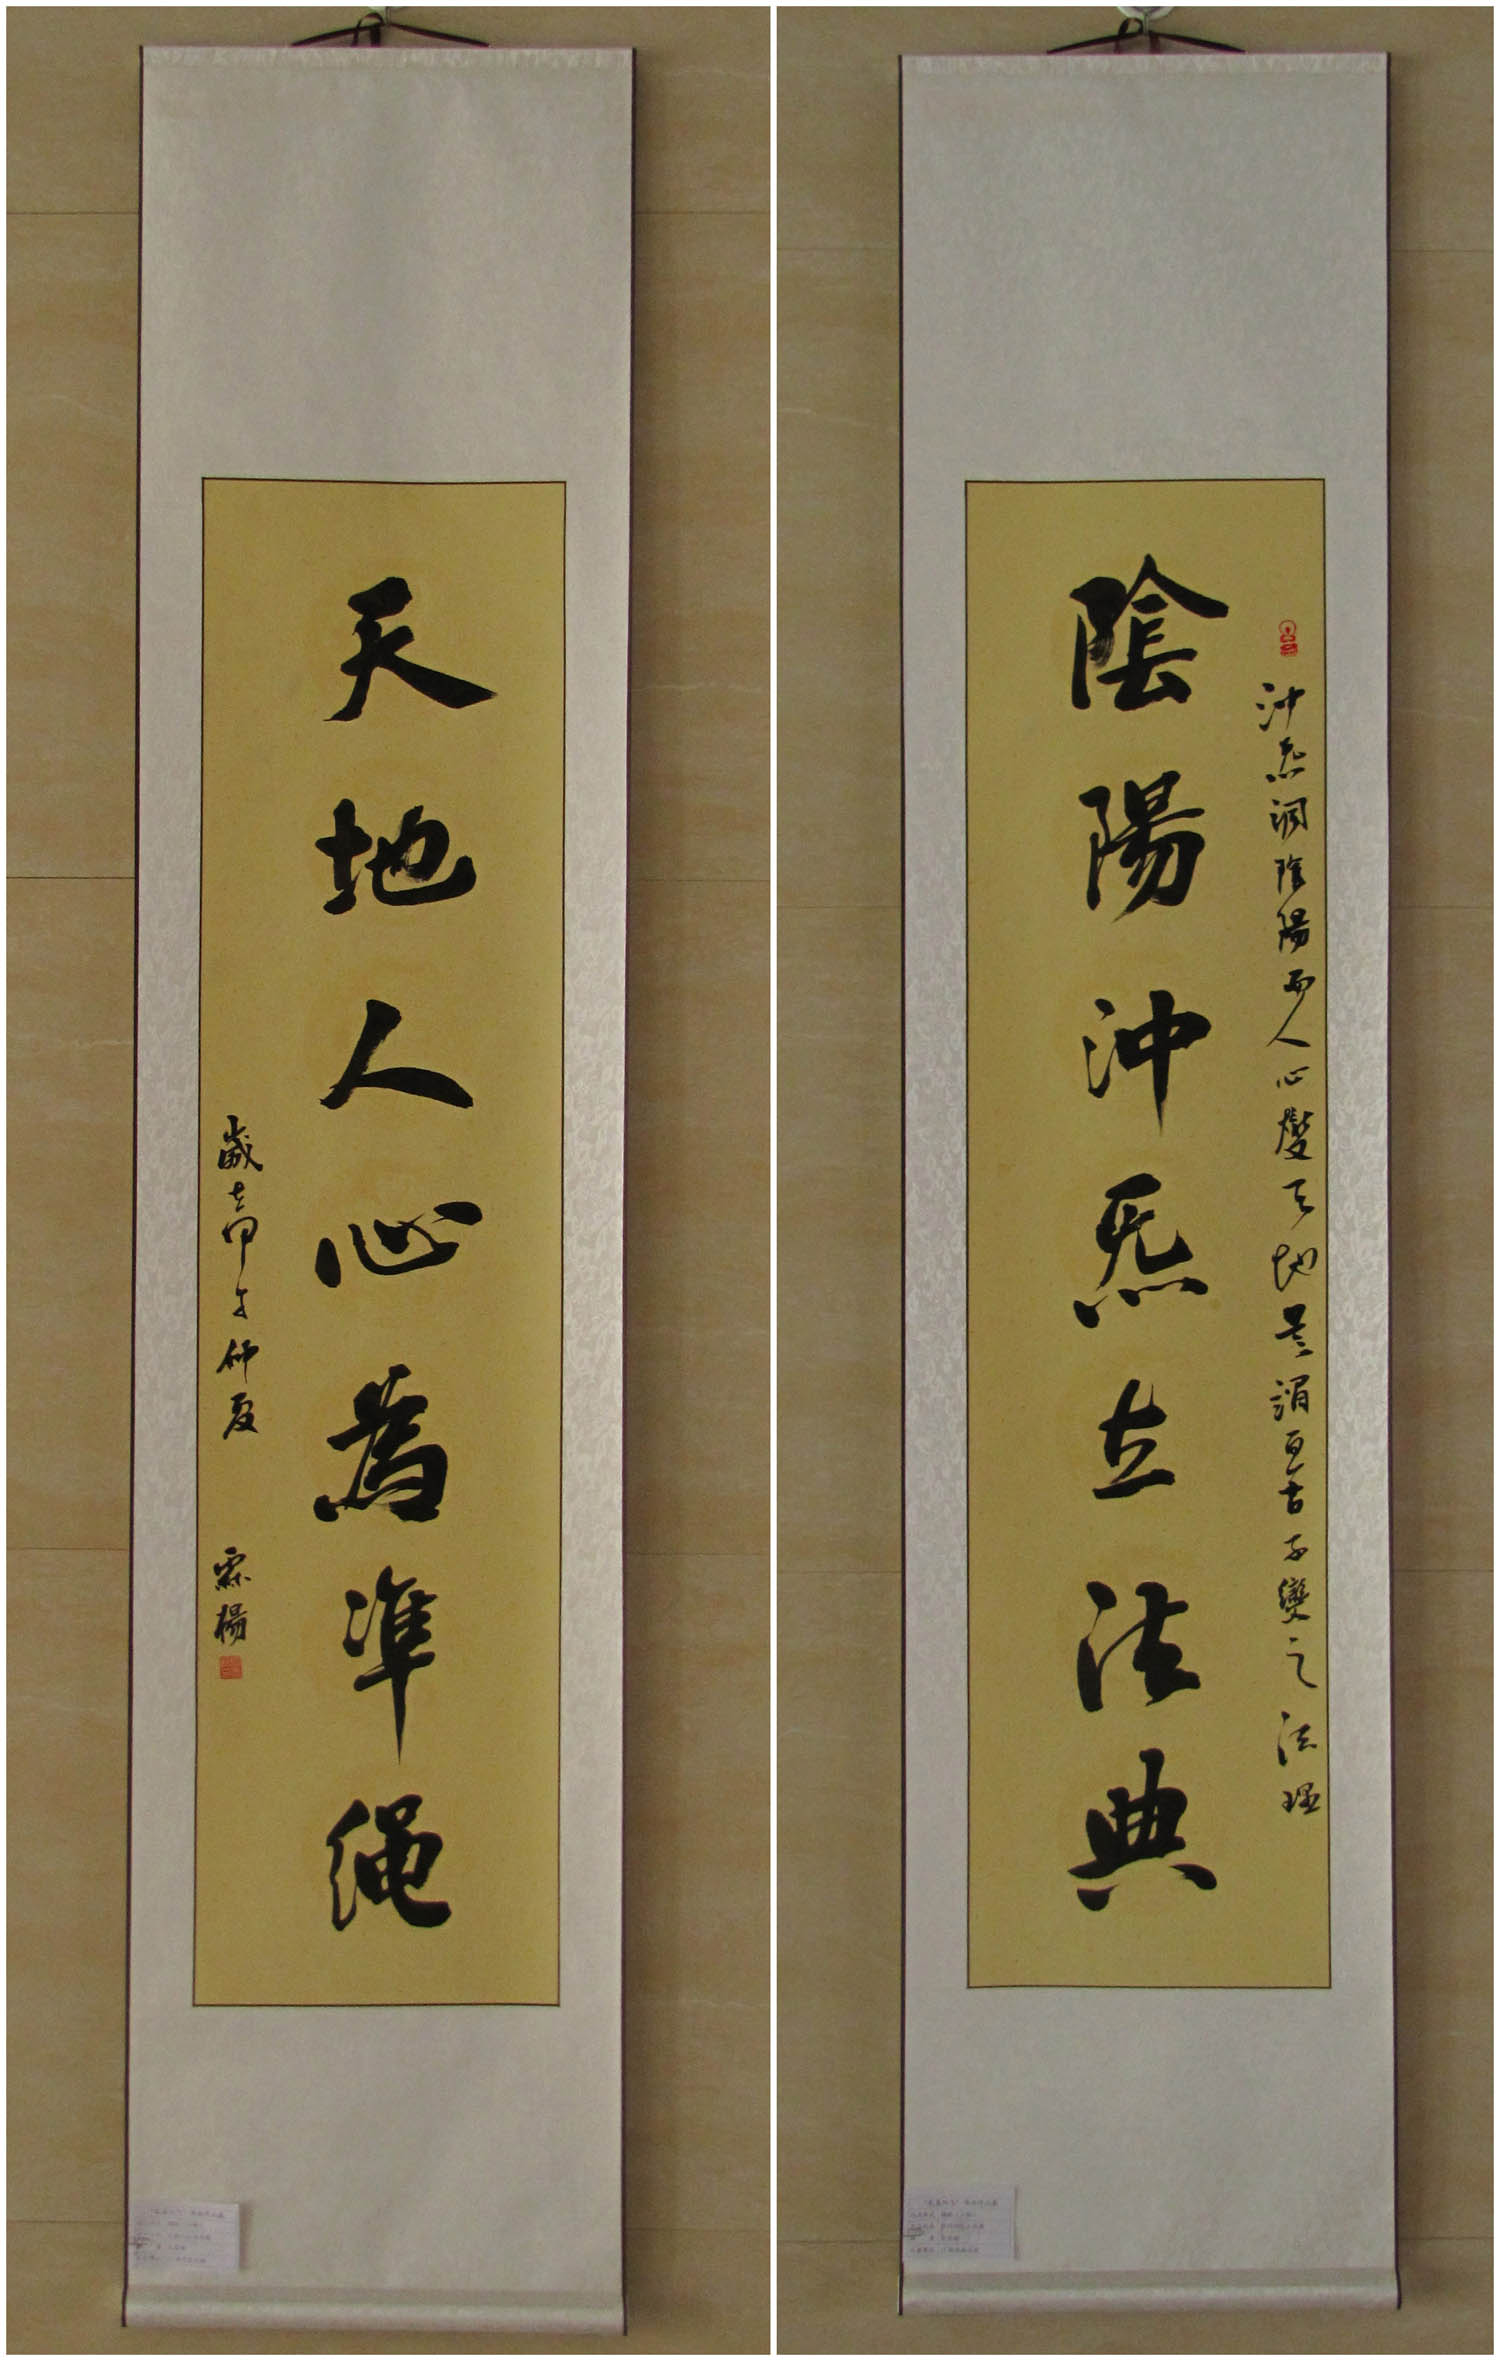 沖炁洞陰陽而人心燮天地是謂亙古不變之法理
陰陽沖炁立法典
天地人心為準繩
歲在甲午仲夏 霖楊